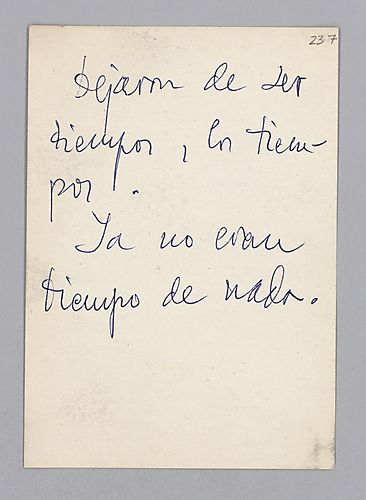 237
Dejaron de ser
tiempos, los tiem-
pos.
Ya no eran
tiempo de nada.